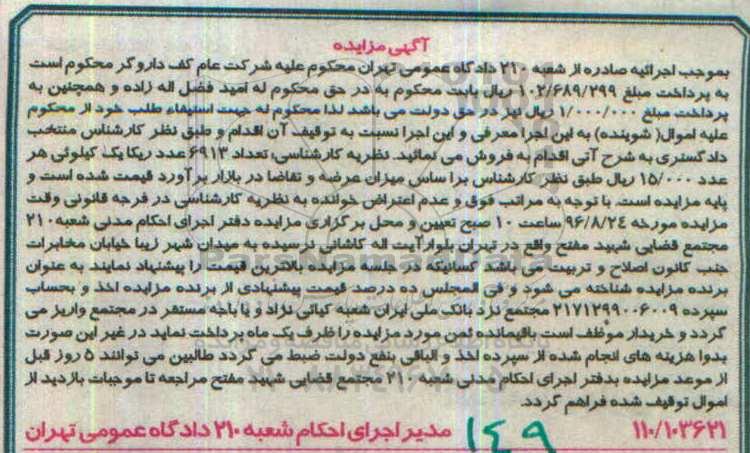 آگهی مزایده
بموجب اجرائیه صادره از شعبه ۲۱۰ دادگاه عمومی تهران محکوم علیه شرکت عام کف داروگر محکوم است
به پرداخت مبلغ ۱۰۲/۶۸۹/۲۹۹ ریال بابت محکوم به در حق محکوم له امید فضل اله زاده و همچنین به
پرداخت مبلغ ۱/۰۰۰/۰۰۰ ریال نیز در حق دولت می باشد لذا محکوم له جهت استیفاء طلب خود از محکوم
علیه اموال( شوینده) به این اجرا معرفی و این اجرا نسبت به توقیف آن اقدام و طبق نظر کارشناس منتخب
دادگستری به شرح آتی اقدام به فروش می نمائید. نظریه کارشناسی: تعداد ۶۹۱۳ عدد ریکا یک کیلوئی هر
عدد ۱۵/۰۰۰ ریال طبق نظر کارشناس برا ساس میزان عرضه و تقاضا در بازار برآورد قیمت شده است و
پایه مزایده است. با توجه به مراتب فوق و عدم اعتراض خوانده به نظریه کارشناسی در فرجه قانونی وقت
مزایده مورخه ۹۶/۸/۲۴ ساعت ۱۰ صبح تعیین و محل برگزاری مزایده دفتر اجرای احکام مدنی شعبه ۲۱۰
مجتمع قضایی شهید مفتح واقع در تهران بلوار آیت اله کاشانی نرسیده به میدان شهر زیبا خیابان مخابرات
جنب کانون اصلاح و تربیت می باشد کسانیکه در جلسه مزایده بالاترین قیمت را پیشنهاد نمایند به عنوان
برنده مزایده شناخته می شود و فی المجلس ده درصد قیمت پیشنهادی از برنده مزایده اخذ و بحساب
سپرده ۲۱۷۱۲۹۹۰۰۶۰۰۹ مجتمع نزد بانک ملی ایران شعبه کیانی نژاد و یا باجه مستقر در مجتمع واریز می
گردد و خریدار موظف است باقیمانده ثمن مورد مزایده را ظرف یک ماه پرداخت نماید در غیر این صورت
بدوا هزینه های انجام شده از سپرده اخذ و الباقی بنفع دولت ضبط می گردد طالبین می توانند ۵ روز قبل
از موعد مزایده بدفتر اجرای احکام مدنی شعبه ۲۱۰ مجتمع قضایی شهید مفتح مراجعه تا موجبات بازدید از
اموال توقیف شده فراهم گردد.
۱۱۰/۱۰۳۶۲۱ ۱۴۹ مدیر اجرای احکام شعبه ۲۱۰ دادگاه عمومی تهران
ParsNamadData